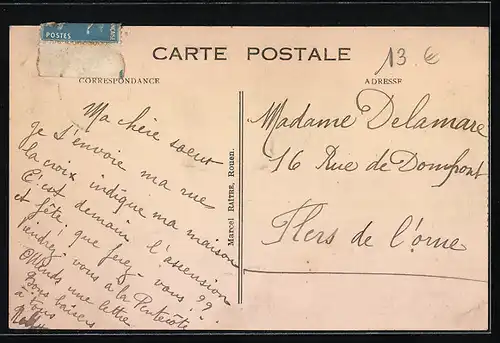 POSTES
CARTE POSTALE
13 €
CORRESPONDANCE
ADRESSE
Ma chère soeur
Je t'envoie ma rue
la croix indique ma maison
C'est demain l'assension
et fête ! que ferez-vous ??
Viendrez vous à la Pentecôte
Attends une lettre
Bons baisers
à tous
Marcel RAITRE, Rouen.
Madame Delamare
16 Rue de Domfront
Flers de l'orne